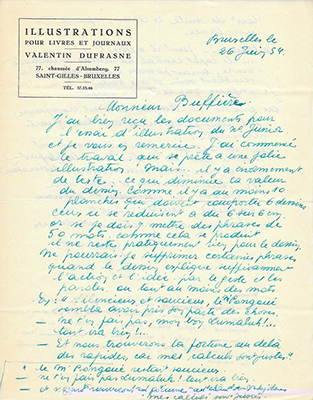 ILLUSTRATIONS
POUR LIVRES ET JOURNAUX
VALENTIN DUFRASNE
77, chaussée d'Alsemberg, 77
SAINT-GILLES - BRUXELLES
TÉL. 37.35.66
Bruxelles le
26 Juin 54.
Monsieur Buffière.
J'ai bien reçu les documents pour
l'essai d'illustration du Junior
et je vous en remercie. J'ai commencé
le travail qui se prête à une jolie
illustration! Mais il y a énormément
de texte, ce qui diminue la valeur
du dessin. Comme il y a au moins 10
planches qui doivent comporter 6 dessins
ceux ci se réduisent à du 6 sur 6 cm.
Or si je dois y mettre des phrases de
50 mots comme cela se produit
il ne reste, pratiquement rien pour le dessin.
Ne pourrais-je supprimer certaines phrases
quand le dessin explique suffisamment
l'action et l'idée par le geste et les
paroles. ou tout au moins des mots
Ex: Silencieux et soucieux, le Mr Rongoué
sembla avoir pris son parti des choses.
— ne t'en fais pas, mon bon Dumaluh!...
tout va bien!...
— Et nous trouverons la fortune au delà
des rapides, car mes calculs sont justes"
le Mr Rongoué restait soucieux
— ne t'en fais pas Dumaluh! tout va bien
— et nous trouverons la fortune au delà des rapides
mes calculs sont justes.